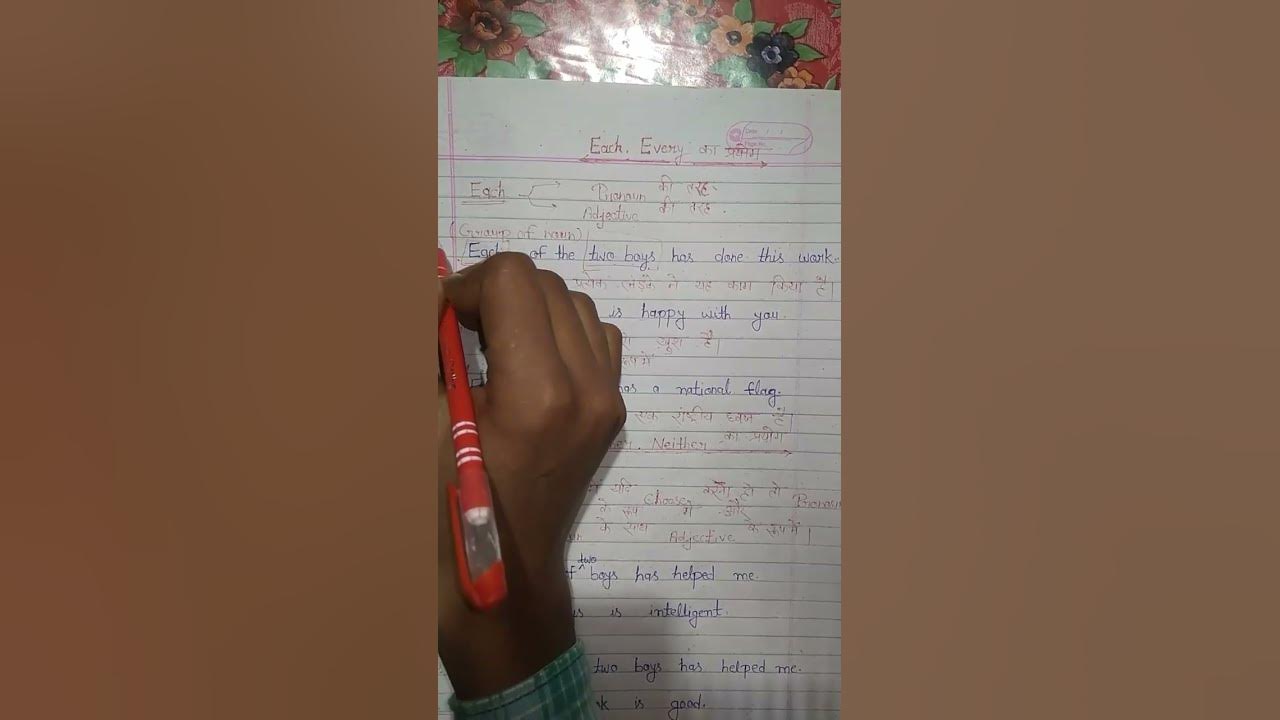 Date / /
Page No.
Each, Every का प्रयोग
Each Pronoun की तरह
Adjective की तरह
(Group of noun)
Each of the two boys has done this work.
प्रत्येक लड़के ने यह काम किया है।
is happy with you.
खुश है।
रूप में
has a national flag.
एक राष्ट्रीय ध्वज है।
Neither का प्रयोग
यदि choose करना हो तो Pronoun
के रूप में और
के साथ Adjective के रूप में।
of two boys has helped me.
is intelligent.
two boys has helped me.
is good.